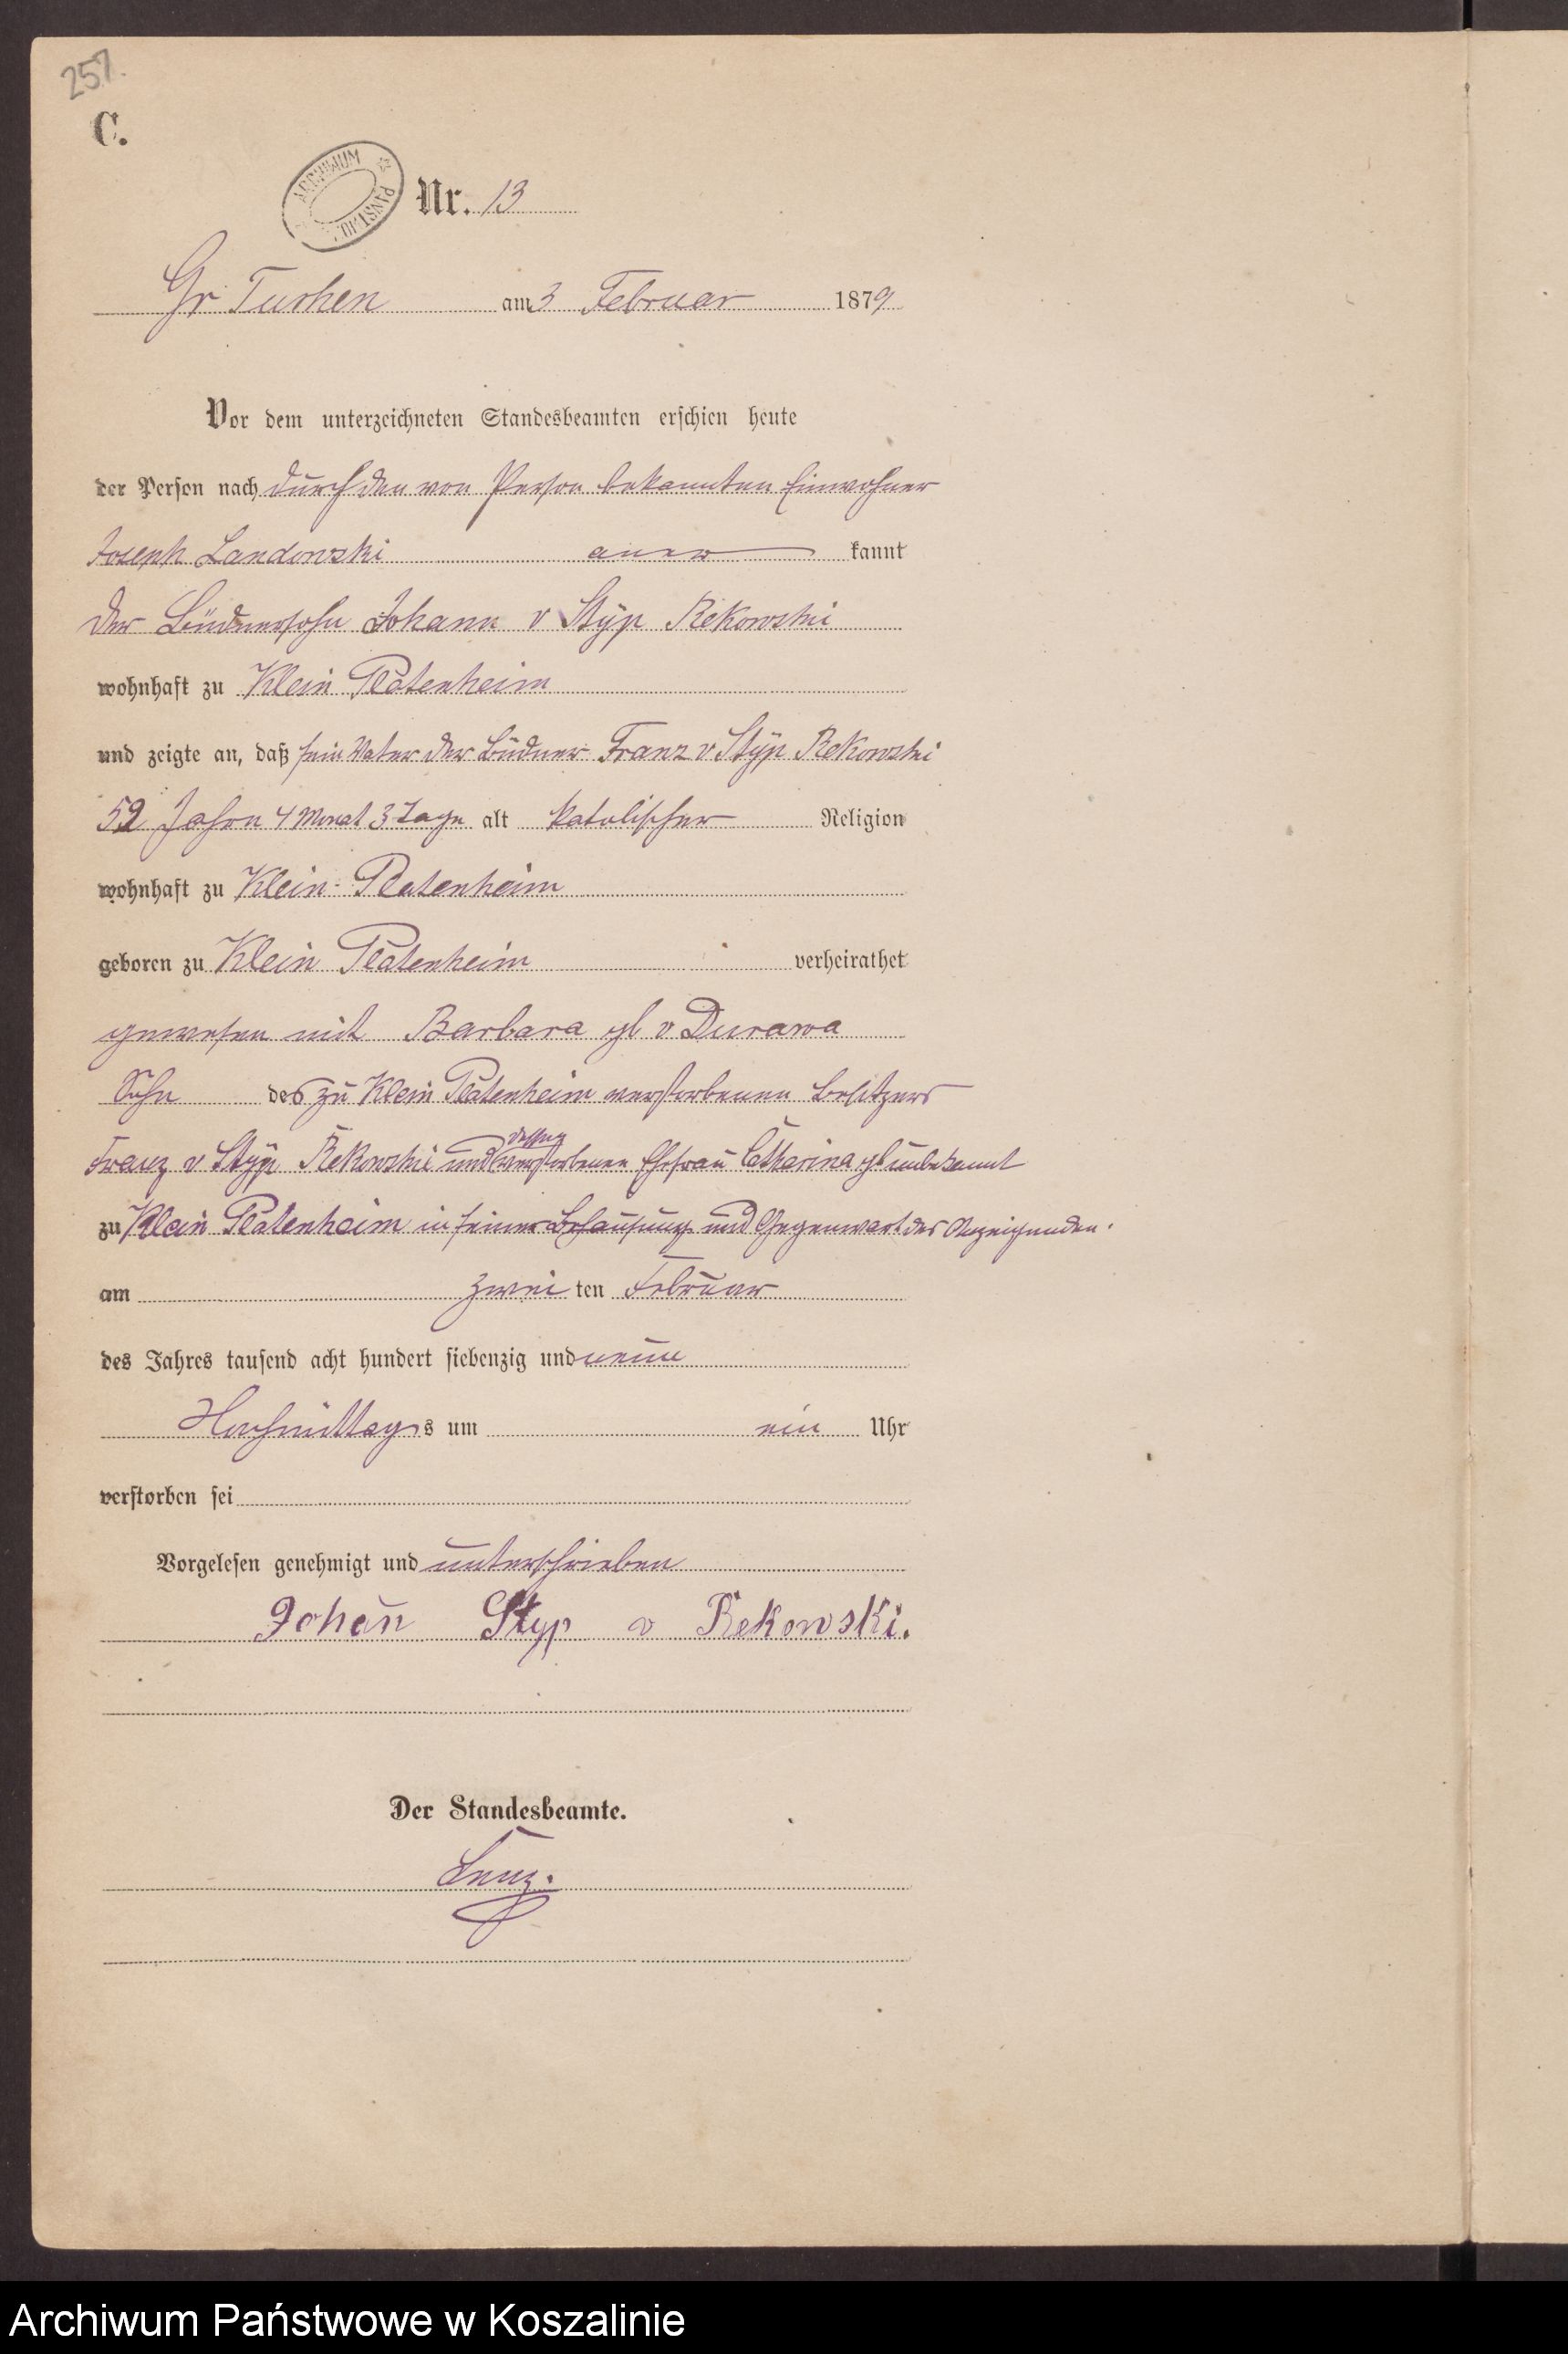 257.
C.
ARCHIWUM PAŃSTWO
Nr. 13
Gr Tuchen am 3 Februar 1879
Vor dem unterzeichneten Standesbeamten erschien heute
der Person nach durch den von Person bekannten Einwohner
Joseph Landowski aner kannt
der Büdnersohn Johann v Styp Rekowski
wohnhaft zu Klein Platenheim
und zeigte an, daß sein Vater der Büdner Franz v Styp Rekowski
52 Jahre 4 Monat 3 Tage alt katolischer Religion
wohnhaft zu Klein-Platenheim
geboren zu Klein Platenheim verheirathet
gewesen mit Barbara gb v Durawa
Sohn des zu Klein Platenheim verstorbenen Besitzers
Franz v Styp Rekowski und dessen verstorbenen Ehefrau Catharina gb unbekannt
zu Klein Platenheim in seiner Behausung und Gegenwart des Anzeigenden.
am zwei ten Februar
des Jahres tausend acht hundert siebenzig und neun
Nachmittags um ein Uhr
verstorben sei
Vorgelesen genehmigt und unterschrieben
Johan Styp v Rekowski.
Der Standesbeamte.
Archiwum Państwowe w Koszalinie